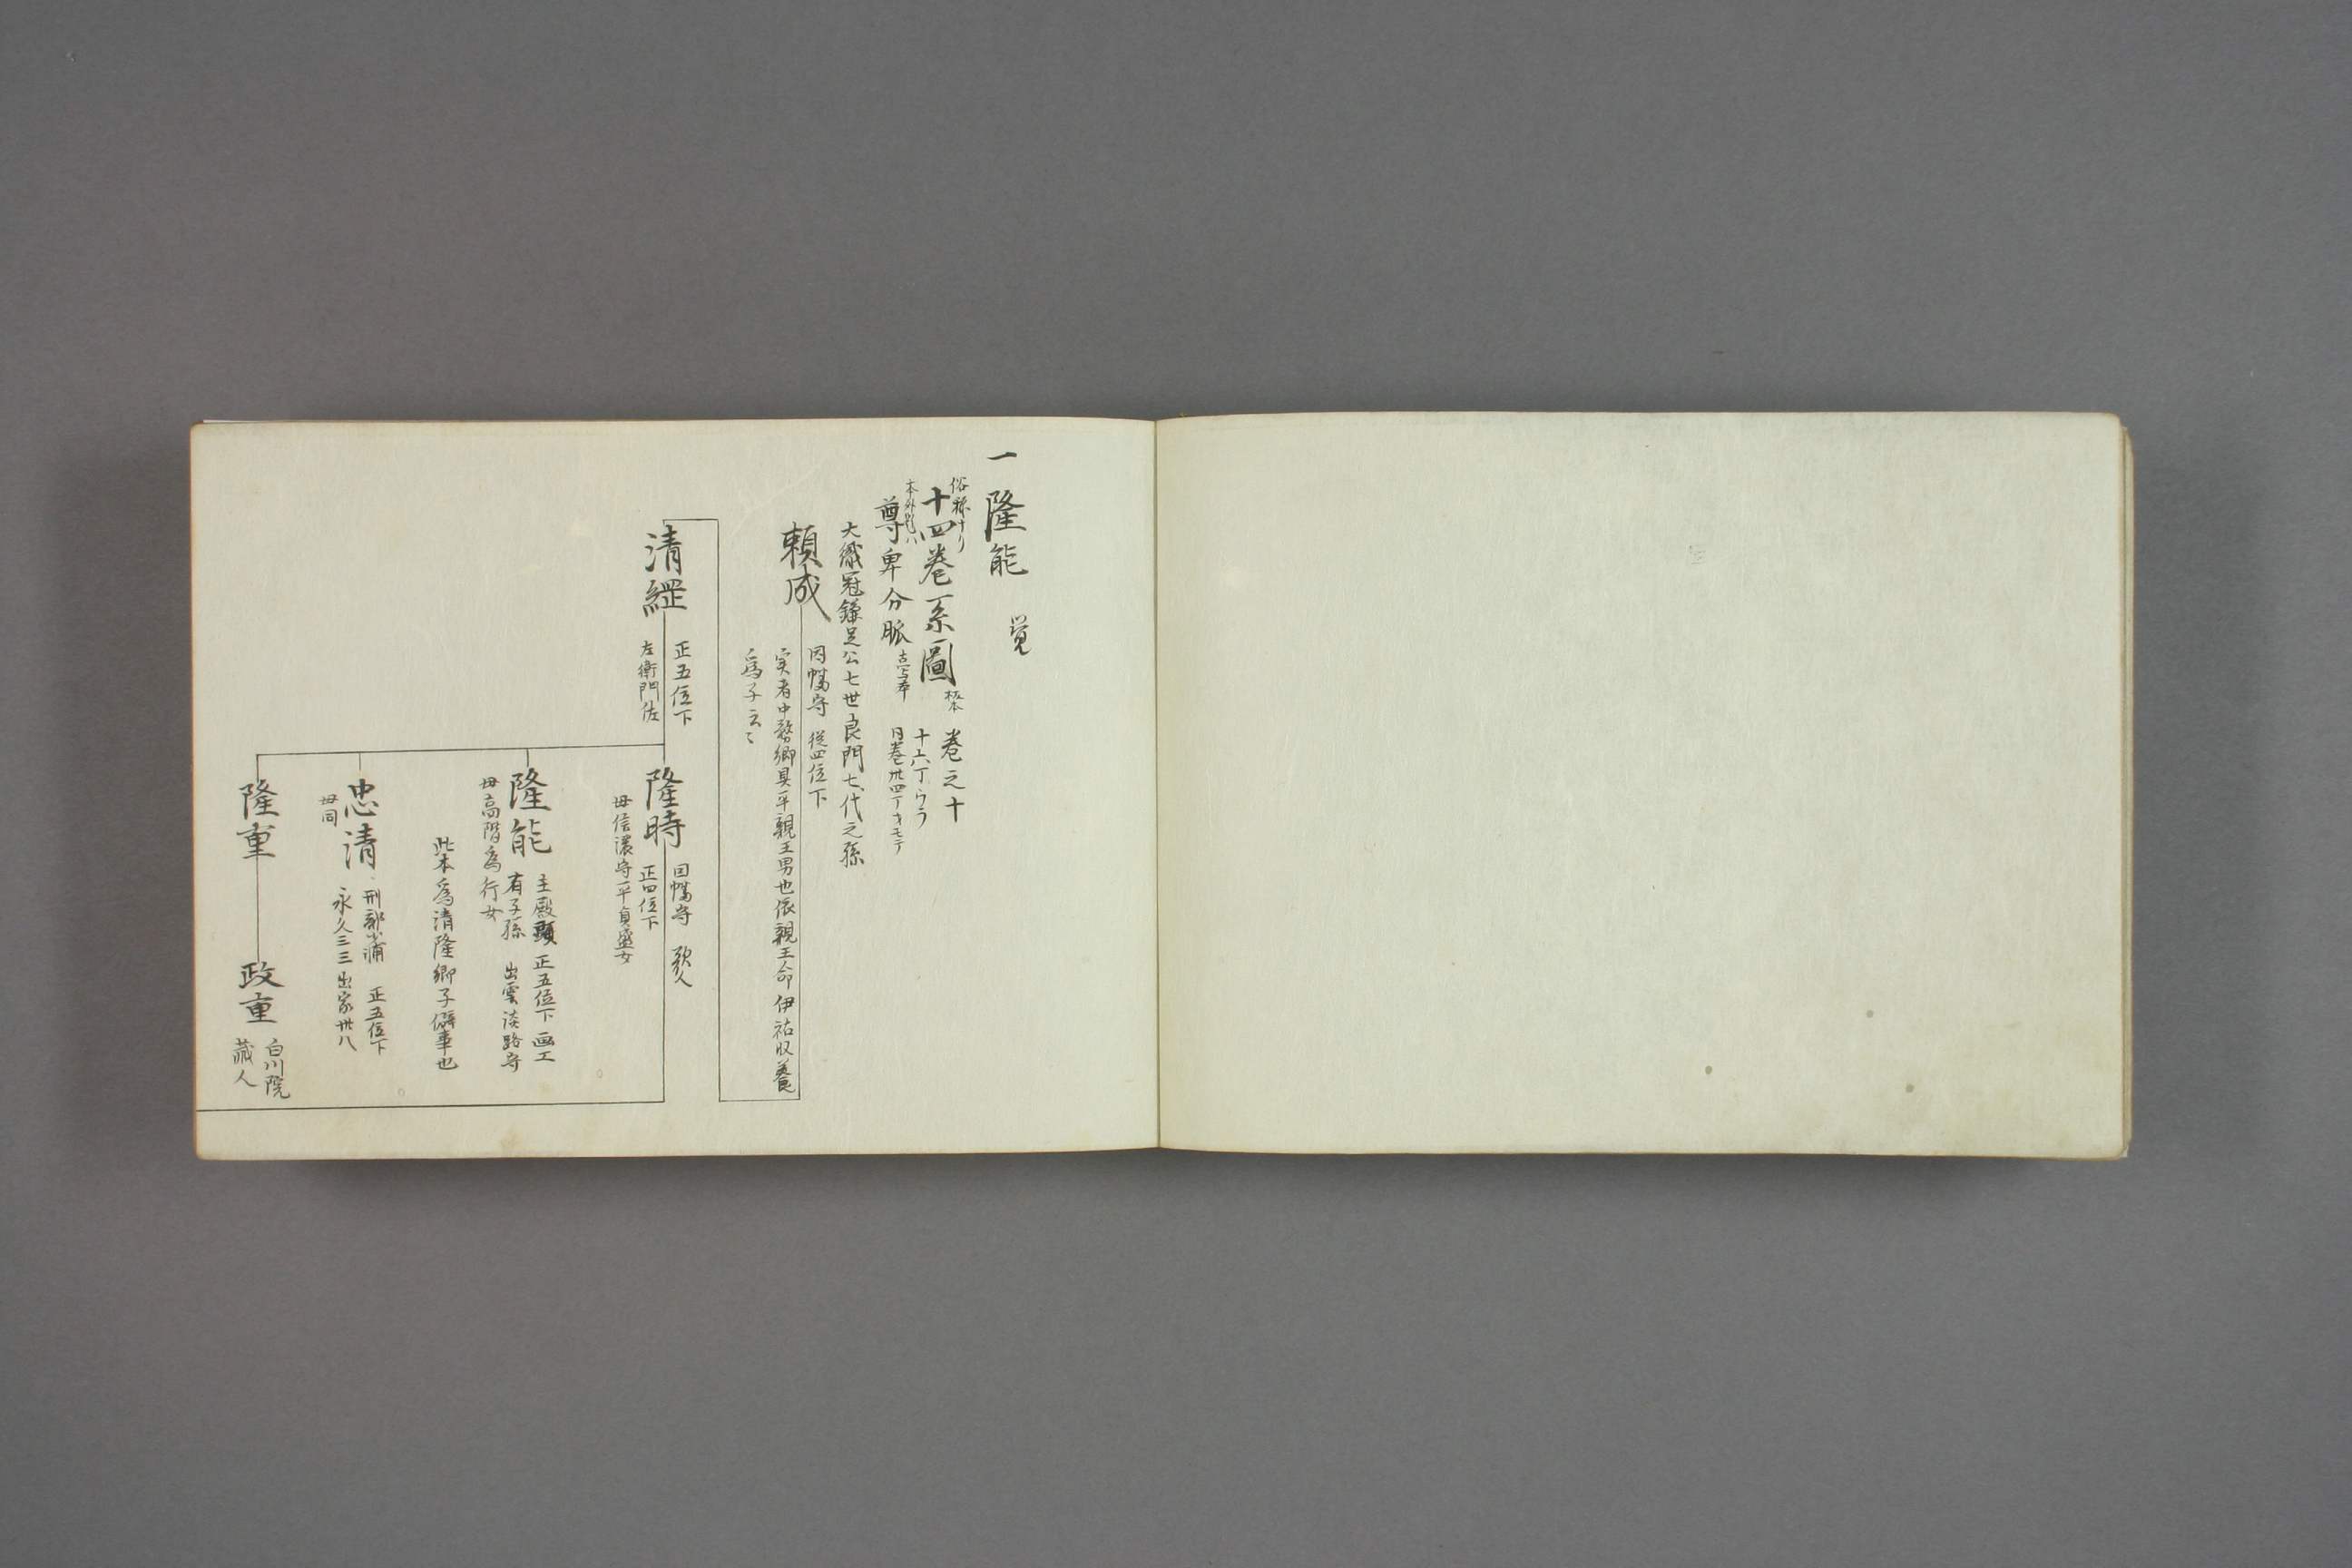 覚
一 隆能
俗称ナリ
十四巻系圖 板本 巻之十
十六丁ウラ
本外題ハ
尊卑分脈 古写本 同巻卅四丁オモテ
大織冠鎌足公七世良門七代之孫
頼成 因幡守 従四位下
実者中務卿具平親王男也依親王命伊祐収養
為子云々
清綱 正五位下
左衛門佐
隆時 因幡守 歌人
正四位下
母信濃守平貞盛女
隆能 主殿頭 正五位下 画工
有子孫 出雲淡路守
母高階為行女
此本為清隆卿子僻事也
忠清 刑部少浦 正五位下
永久三三出家卅八
母同
隆重
政重 白川院
蔵人